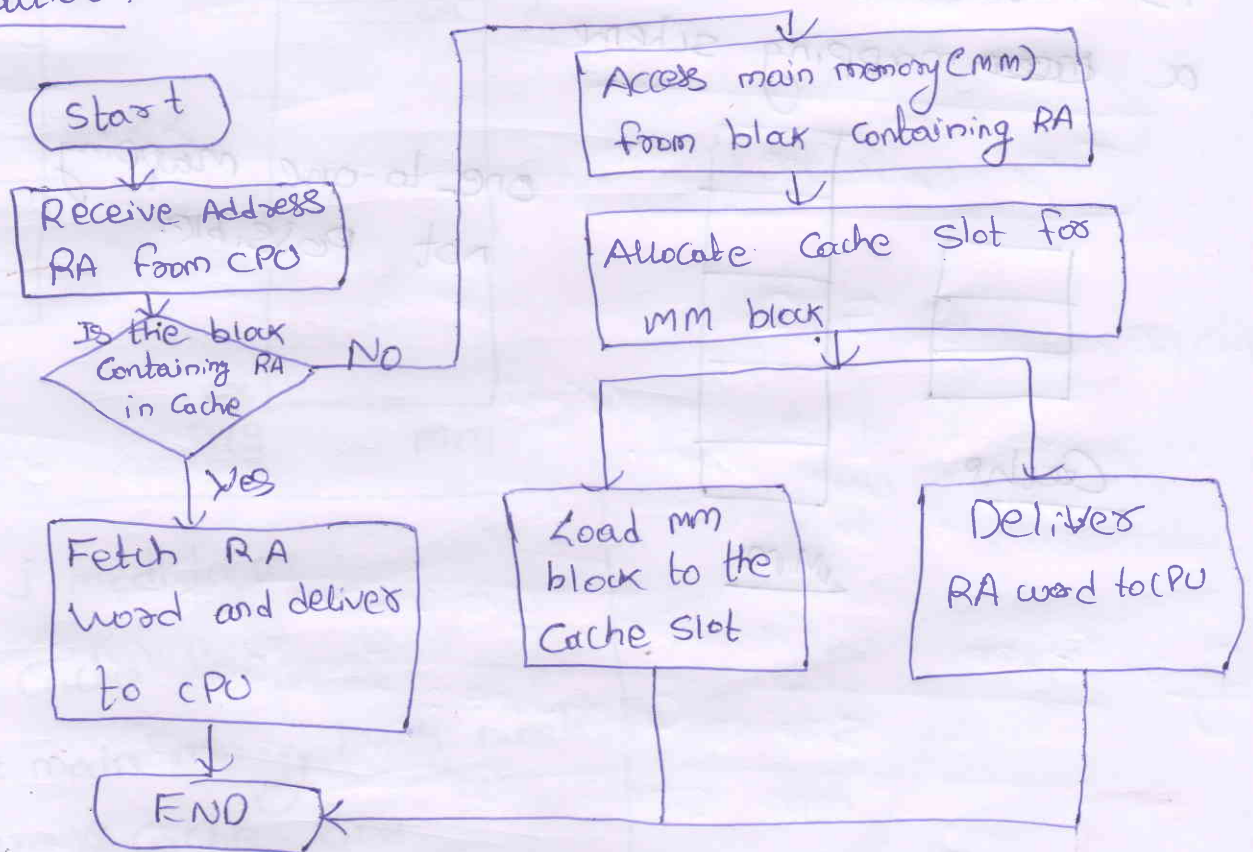 Start
Receive Address
RA from CPU
Is the block
Containing RA
in Cache
No
Yes
Fetch RA
word and deliver
to CPU
END
Access main memory (MM)
from block containing RA
Allocate Cache Slot for
MM block.
Load MM
block to the
Cache Slot
Deliver
RA word to CPU